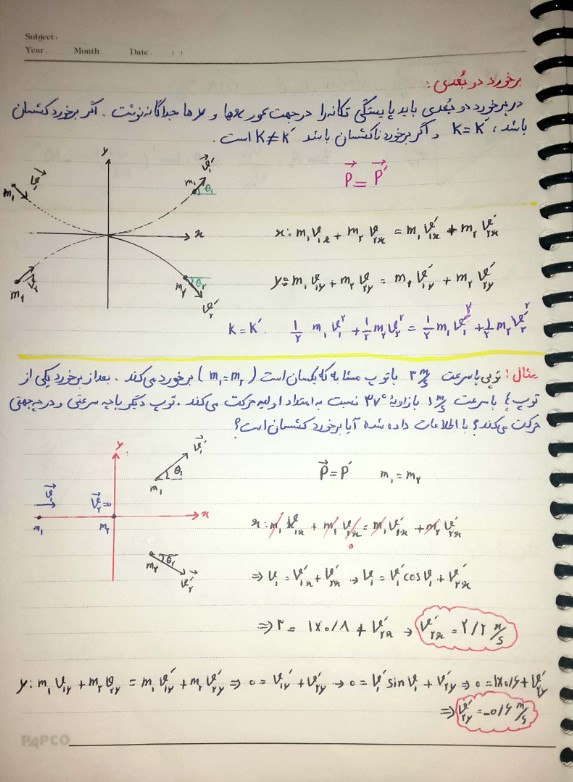 Subject:
Year. Month. Date. ( )
برخورد دو بُعدی:
در برخورد دو بُعدی باید پایستگی تکانه را در جهت محور xها و yها جداگانه نوشت. اگر برخورد کشسان
باشد، K=K′ و اگر برخورد ناکشسان باشد K≠K′ است.
P⃗ = P⃗′
y
x
m₁ v⃗₁
m₁ v⃗′₁ θ₁
m₂ v⃗₂
m₂ v⃗′₂ θ₂
x: m₁v₁ₓ + m₂v₂ₓ = m₁v′₁ₓ + m₂v′₂ₓ
y= m₁v₁y + m₂v₂y = m₂v′₁y + m₂v′₂y
K=K′ ½ m₁v₁² + ½ m₂v₂² = ½ m₁v′₁² + ½ m₂v′₂²
مثال: توپی با سرعت ۳ m/s با توپ مشابه که یکسان است (m₁=m₂) برخورد می‌کند. بعد از برخورد یکی از
توپ‌ها با سرعت ۱ m/s با زاویهٔ ۳۷° نسبت به امتداد اولیه حرکت می‌کند. توپ دیگر با چه سرعتی و در چه جهتی
حرکت می‌کند؟ با اطلاعات داده شده آیا برخورد کشسان است؟
y
x
m₁ v⃗₁
m₂ v⃗₂=
m₁ v⃗′₁ θ₁
m₂ v⃗′₂ θ₁
P⃗=P′ m₁=m₂
x: m₁v₁ₓ + m₂v₂ₓ = m₁v′₁ₓ + m₂v′₂ₓ
0
⇒ v₁ = v′₁ₓ + v′₂ₓ → v₁ = v′₁cosθ₁ + v′₂ₓ
⇒ ۳ = ۱×۰/۸ + v′₂ₓ → v′₂ₓ = ۲/۲ m/s
y: m₁v₁y + m₂v₂y = m₁v′₁y + m₂v′₂y ⇒ 0 = v′₁y + v′₂y → 0 = v′₁ sinθ₁ + v′₂y ⇒ 0 = ۱×۰/۶ + v′₂y
⇒ v′₂y = -۰/۶ m/s
PAPCO